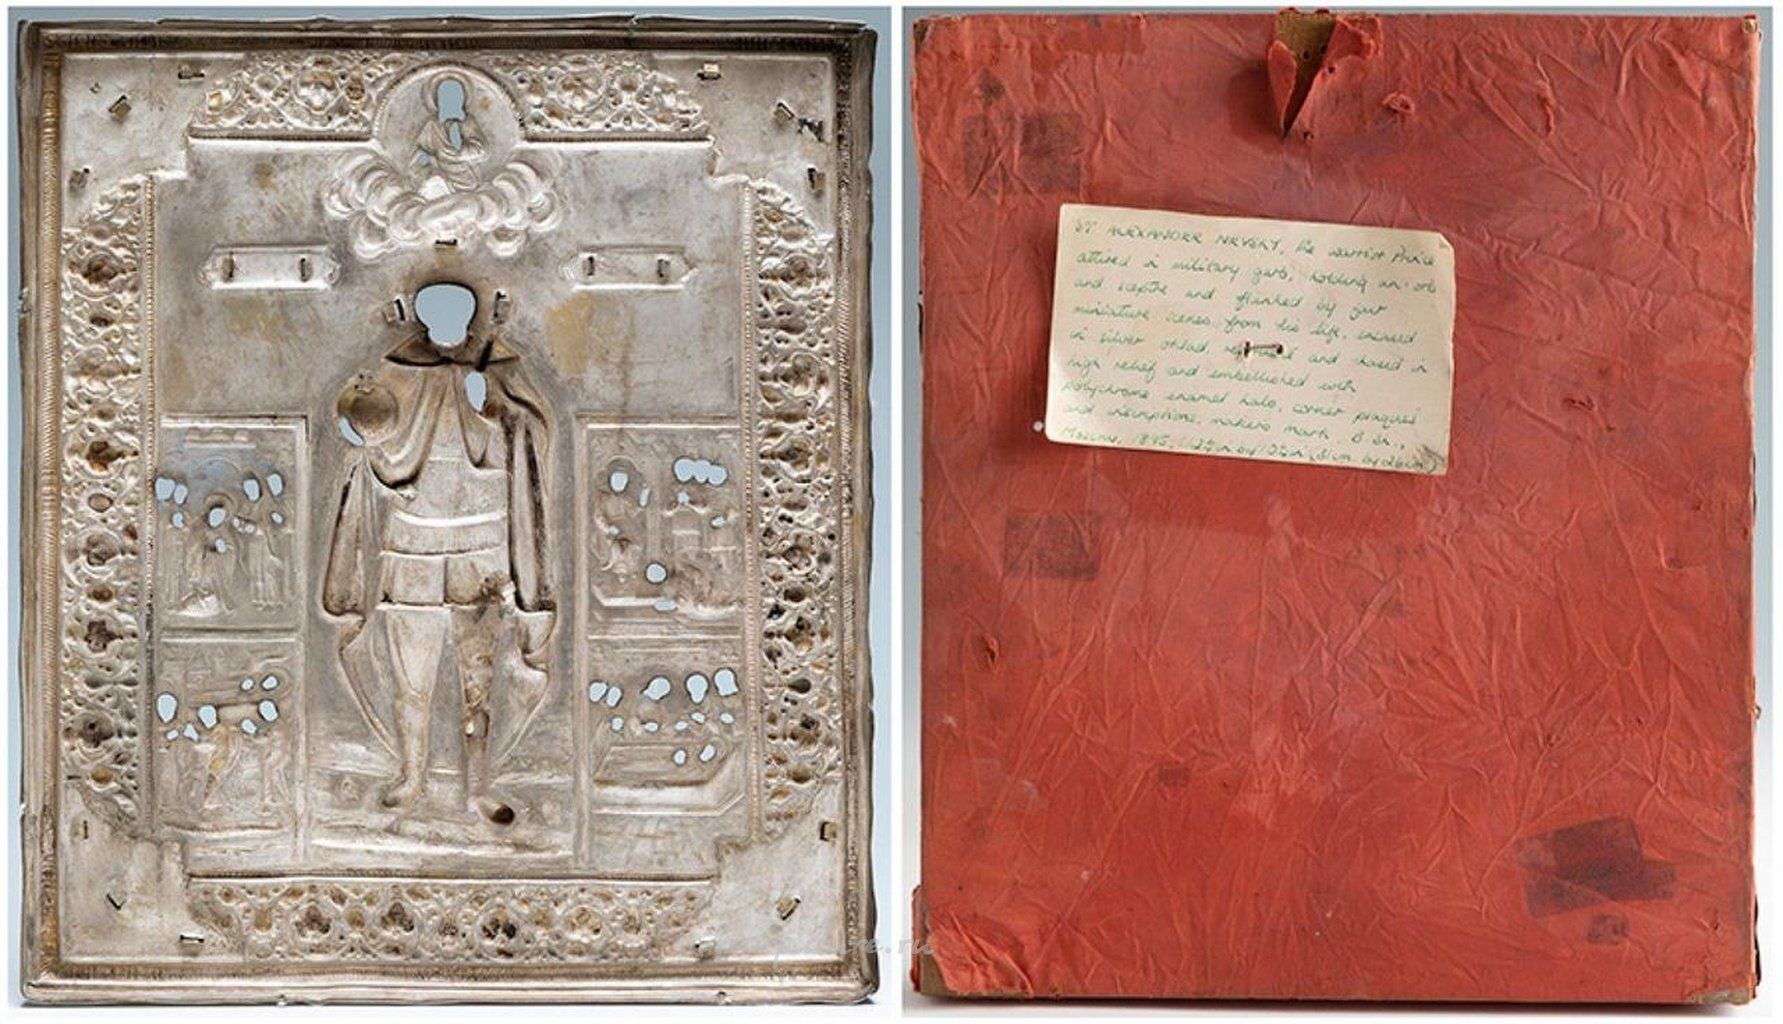 ST ALEXANDER NEVSKY, the warrior Prince
attired in military garb, holding an orb
and sceptre and flanked by four
miniature scenes from his life, encased
in silver oklad, and chased in
high relief and embellished with
polychrome enamel halo, corner plaques
and inscriptions, makers mark,
Moscow, 1895. (31cm. by 26cm)
re.ru